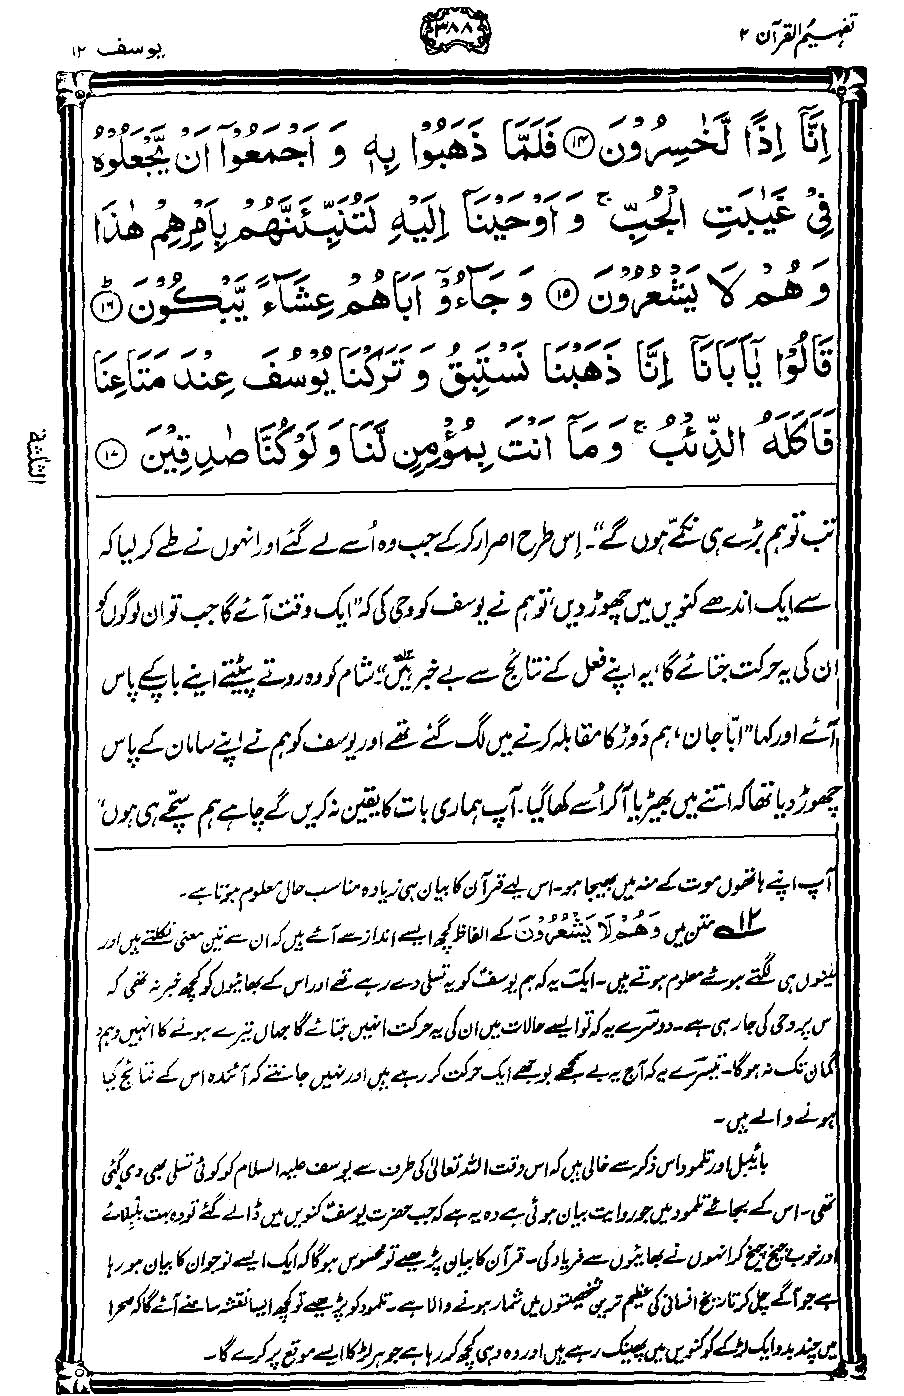 تفہیم القرآن ۲
۳۸۸
یوسف ۱۲
اِنَّآ اِذًا لَّخٰسِرُوْنَ ﴿۱۴﴾ فَلَمَّا ذَهَبُوْا بِهٖ وَ اَجْمَعُوْٓا اَنْ يَّجْعَلُوْهُ
فِيْ غَيٰبَتِ الْجُبِّ ۚ وَ اَوْحَيْنَآ اِلَيْهِ لَتُنَبِّئَنَّهُمْ بِاَمْرِهِمْ هٰذَا
وَ هُمْ لَا يَشْعُرُوْنَ ﴿۱۵﴾ وَ جَآءُوْٓ اَبَاهُمْ عِشَآءً يَّبْكُوْنَ ﴿۱۶﴾
قَالُوْا يٰٓاَبَانَآ اِنَّا ذَهَبْنَا نَسْتَبِقُ وَ تَرَكْنَا يُوْسُفَ عِنْدَ مَتَاعِنَا
فَاَكَلَهُ الذِّئْبُ ۚ وَ مَآ اَنْتَ بِمُؤْمِنٍ لَّنَا وَ لَوْ كُنَّا صٰدِقِيْنَ ﴿۱۷﴾
الثلثة
تب تو ہم بڑے ہی نکمّے ہوں گے“۔ اِس طرح اصرار کرکے جب وہ اُسے لے گئے اور انہوں نے طے کر لیا کہ
سے ایک اندھے کنویں میں چھوڑ دیں، تو ہم نے یوسف کو وحی کی کہ ”ایک وقت آئے گا جب تو ان لوگوں کو
ان کی یہ حرکت جتائے گا، یہ اپنے فعل کے نتائج سے بے خبر ہیں“۔ شام کو وہ روتے پیٹتے اپنے باپ کے پاس
آئے اور کہا ”ابّا جان، ہم دَوڑ کا مقابلہ کرنے میں لگ گئے تھے اور یوسف کو ہم نے اپنے سامان کے پاس
چھوڑ دیا تھا کہ اتنے میں بھیڑیا آکر اُسے کھا گیا۔ آپ ہماری بات کا یقین نہ کریں گے چاہے ہم سچّے ہی ہوں“
آپ اپنے ہاتھوں موت کے منہ میں بھیجا ہو۔ اس لیے قرآن کا بیان ہی زیادہ مناسب حال معلوم ہوتا ہے۔
۱۲ متن میں وَهُمْ لَا يَشْعُرُوْنَ کے الفاظ کچھ ایسے انداز سے آئے ہیں کہ ان سے تین معنی نکلتے ہیں اور
تینوں ہی لگتے ہوئے معلوم ہوتے ہیں۔ ایک یہ کہ ہم یوسفؑ کو یہ تسلی دے رہے تھے اور اس کے بھائیوں کو کچھ خبر نہ تھی کہ
س پر وحی کی جا رہی ہے۔ دوسرے یہ کہ تو ایسے حالات میں ان کی یہ حرکت انہیں جتائے گا جہاں تیرے ہونے کا انہیں وہم و
گمان تک نہ ہوگا۔ تیسرے یہ کہ آج یہ بے سمجھے بوجھے ایک حرکت کر رہے ہیں اور نہیں جانتے کہ آئندہ اس کے نتائج کیا
ہونے والے ہیں۔
بائیبل اور تلمود اس ذکر سے خالی ہیں کہ اس وقت اللہ تعالیٰ کی طرف سے یوسف علیہ السلام کو کوئی تسلی بھی دی گئی
تھی۔ اس کے بجائے تلمود میں جو روایت بیان ہوئی ہے وہ یہ ہے کہ جب حضرت یوسفؑ کنویں میں ڈالے گئے تو وہ بہت بلبلائے
اور خوب چیخ چیخ کر انہوں نے بھائیوں سے فریاد کی۔ قرآن کا بیان پڑھیے تو محسوس ہوگا کہ ایک ایسے نوجوان کا بیان ہو رہا
ہے جو آگے چل کر تاریخ انسانی کی عظیم ترین شخصیتوں میں شمار ہونے والا ہے۔ تلمود کو پڑھیے تو کچھ ایسا نقشہ سامنے آئے گا کہ صحرا
میں چند بدو ایک لڑکے کو کنویں میں پھینک رہے ہیں اور وہ وہی کچھ کر رہا ہے جو ہر لڑکا ایسے موقع پر کرے گا۔